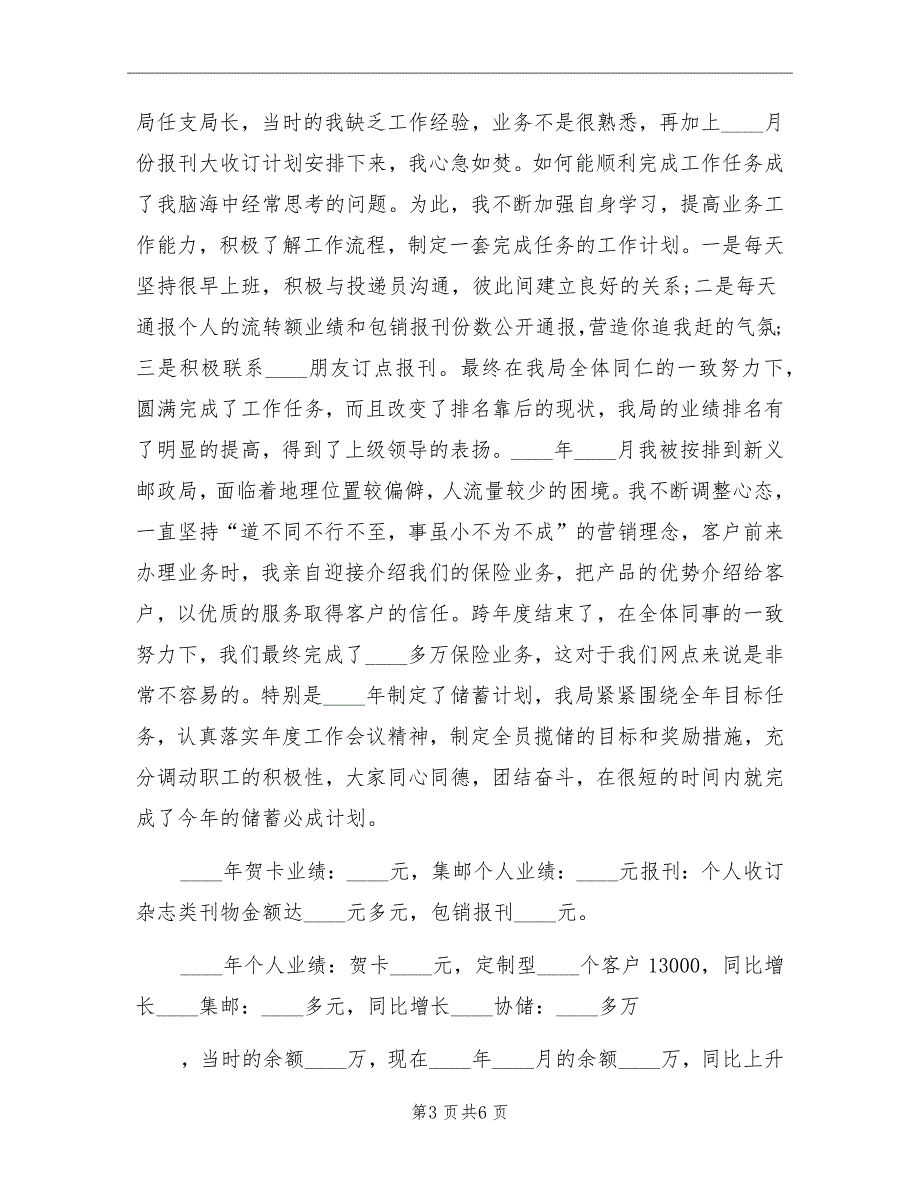 局任支局长，当时的我缺乏工作经验，业务不是很熟悉，再加上____月
份报刊大收订计划安排下来，我心急如焚。如何能顺利完成工作任务成
了我脑海中经常思考的问题。为此，我不断加强自身学习，提高业务工
作能力，积极了解工作流程，制定一套完成任务的工作计划。一是每天
坚持很早上班，积极与投递员沟通，彼此间建立良好的关系;二是每天
通报个人的流转额业绩和包销报刊份数公开通报,营造你追我赶的气氛;
三是积极联系____朋友订点报刊。最终在我局全体同仁的一致努力下，
圆满完成了工作任务，而且改变了排名靠后的现状，我局的业绩排名有
了明显的提高，得到了上级领导的表扬。____年____月我被按排到新义
邮政局，面临着地理位置较偏僻，人流量较少的困境。我不断调整心态，
一直坚持“道不同不行不至，事虽小不为不成”的营销理念，客户前来
办理业务时，我亲自迎接介绍我们的保险业务，把产品的优势介绍给客
户，以优质的服务取得客户的信任。跨年度结束了，在全体同事的一致
努力下，我们最终完成了____多万保险业务，这对于我们网点来说是非
常不容易的。特别是____年制定了储蓄计划，我局紧紧围绕全年目标任
务，认真落实年度工作会议精神，制定全员揽储的目标和奖励措施，充
分调动职工的积极性，大家同心同德，团结奋斗，在很短的时间内就完
成了今年的储蓄必成计划。
____年贺卡业绩：____元，集邮个人业绩：____元报刊：个人收订
杂志类刊物金额达____元多元，包销报刊____元。
____年个人业绩：贺卡____元，定制型____个客户 13000，同比增
长____集邮：____多元，同比增长____协储：____多万
，当时的余额____万，现在____年____月的余额____万，同比上升
第3 页共6 页